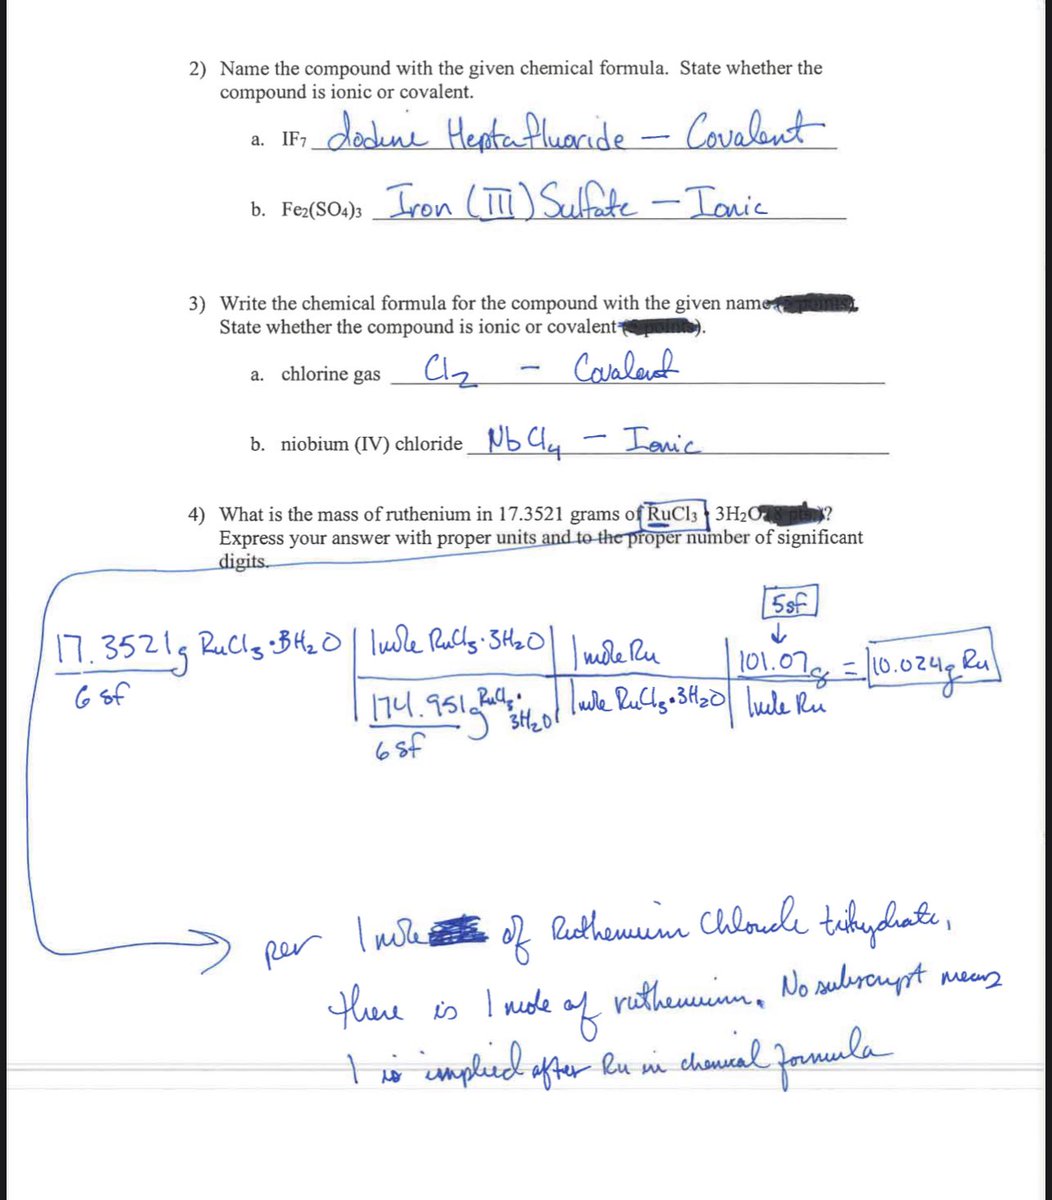 2) Name the compound with the given chemical formula. State whether the
compound is ionic or covalent.
a. IF7 Iodine Heptafluoride – Covalent
b. Fe2(SO4)3 Iron (III) Sulfate – Ionic
3) Write the chemical formula for the compound with the given name
State whether the compound is ionic or covalent ).
a. chlorine gas Cl2 – Covalent
b. niobium (IV) chloride NbCl4 – Ionic
4) What is the mass of ruthenium in 17.3521 grams of RuCl3 · 3H2O ?
Express your answer with proper units and to the proper number of significant
digits.
5sf
17.3521g RuCl3·3H2O | 1mole RuCl3·3H2O | 1 mole Ru | 101.07g = 10.024g Ru
6 sf 174.951g RuCl3· 3H2O | 1mole RuCl3·3H2O | 1mole Ru
6 sf
per 1 mole of Ruthenium Chloride trihydrate,
there is 1 mole of ruthenium. No subscript means
1 is implied after Ru in chemical formula